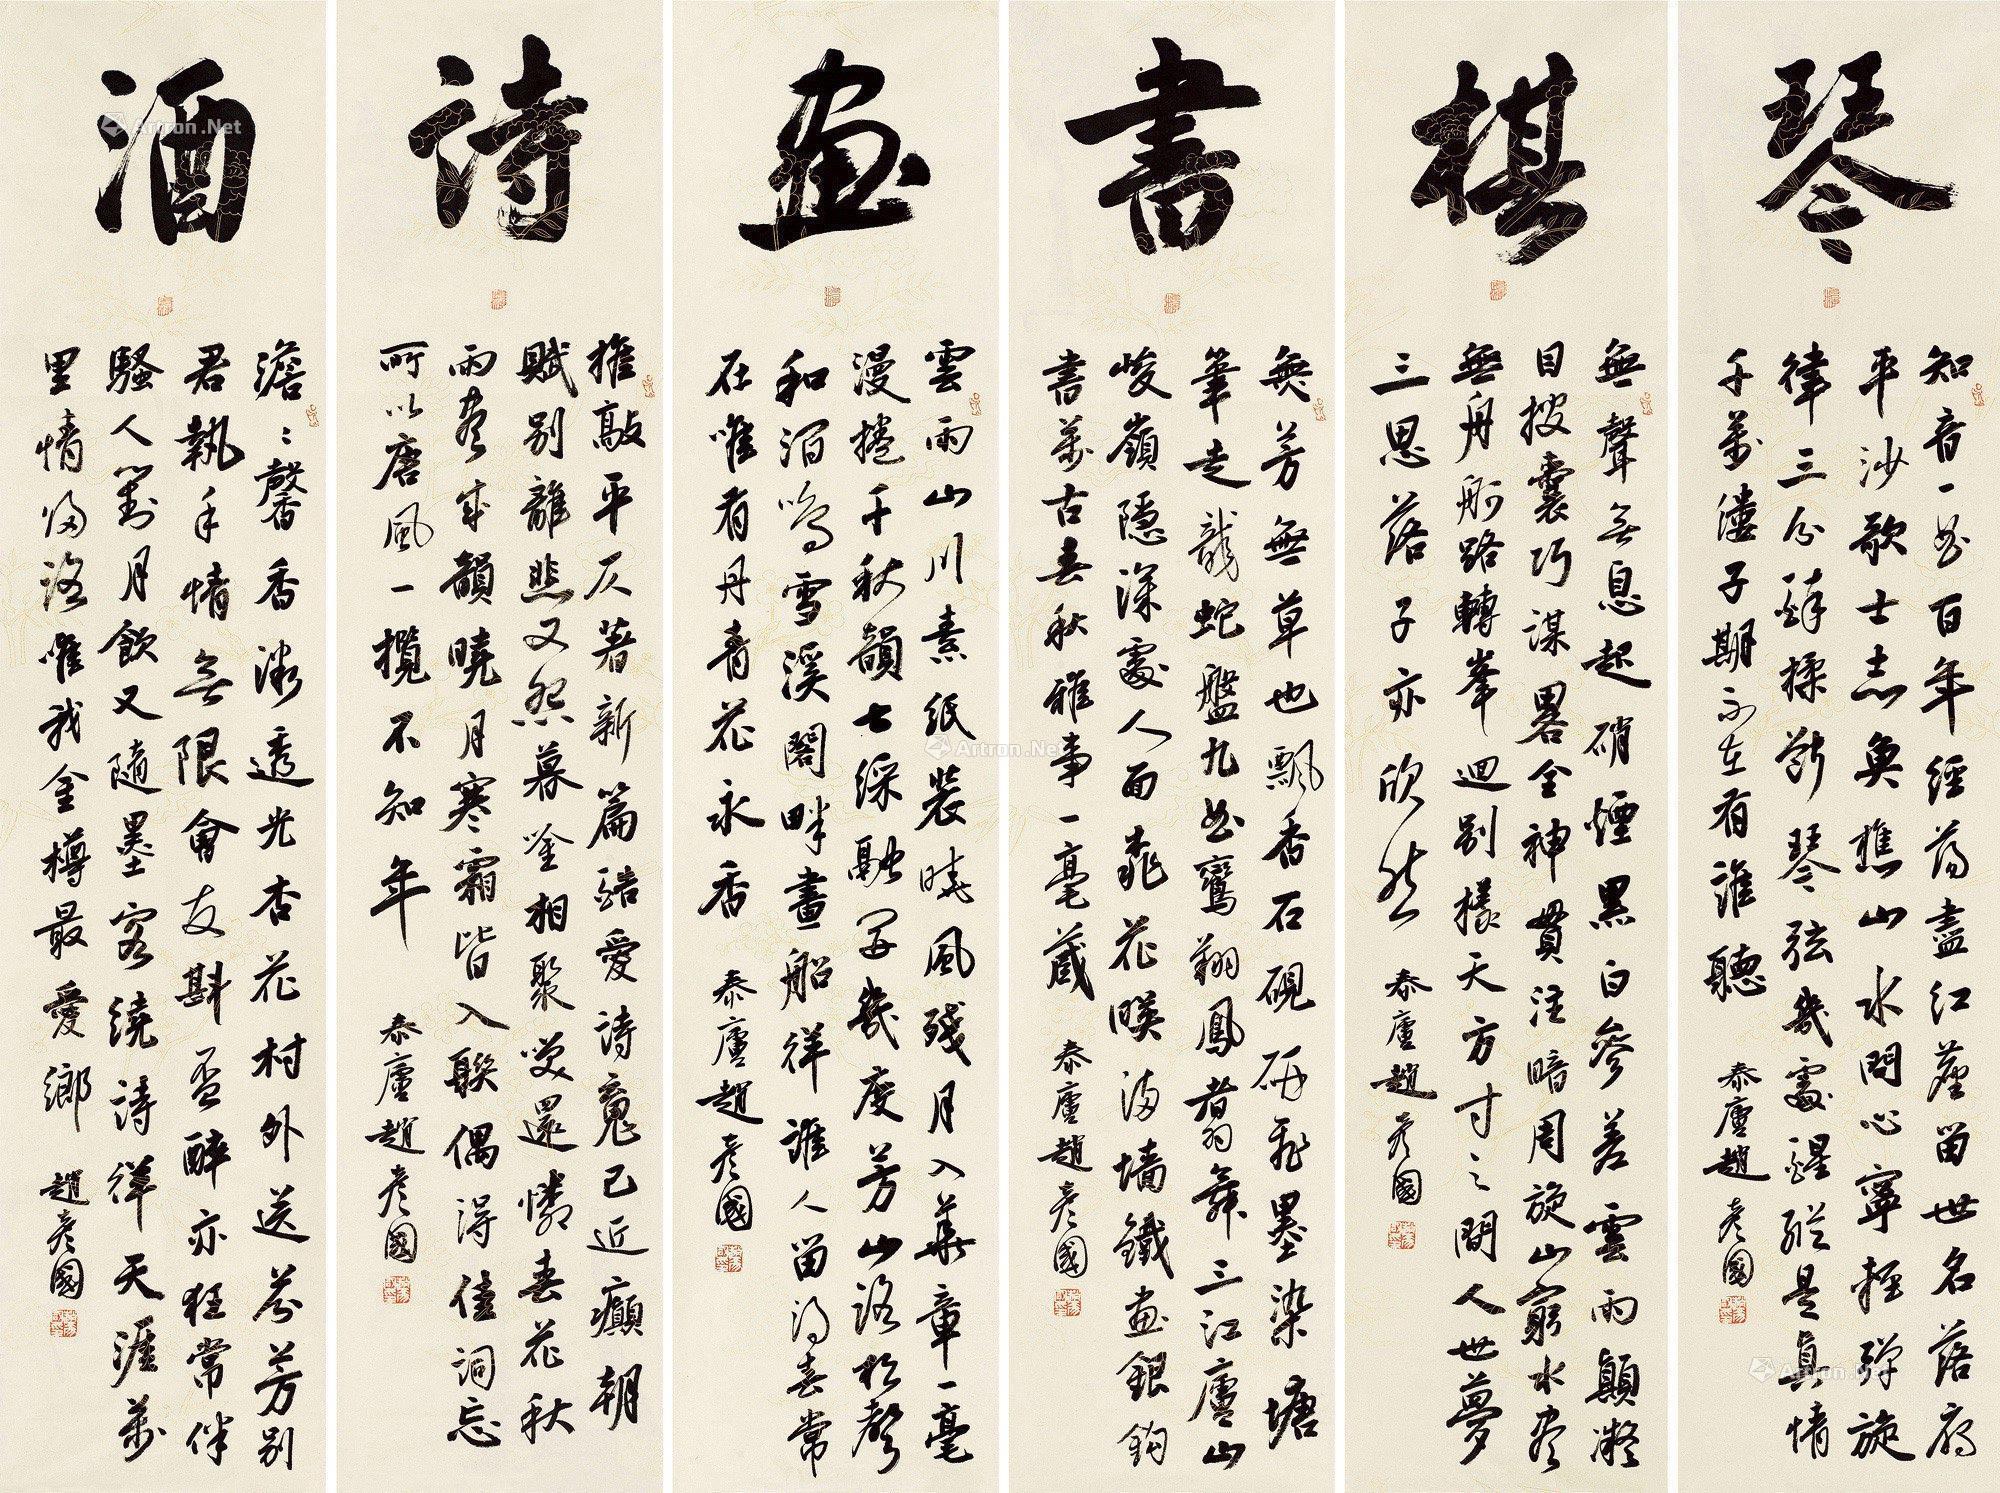 琴
知音一曲百年經蕩盡紅塵留世名落雁
平沙歌士志魚樵山水問心寧輕彈旋
律三分醉揉斷琴弦幾處醒縱是真情
千萬縷子期不在有誰聽
泰廬趙彥國
棋
無聲無息起硝煙黑白參差雲雨顛凝
目搜囊巧謀畧全神貫注暗周旋山窮水盡
無舟舸路轉峯迴別樣天方寸之間人世夢
三思落子亦欣然
泰廬趙彥國
書
無芳無草也飄香石硯研飛墨染塘
筆走龍蛇盤九曲鸞翔鳳翥舞三江廬山
峻嶺隱深處人面桃花映滿墻鐵畫銀鈎
書萬古春秋雅事一毫藏
泰廬趙彥國
畫
雲雨山川素紙裝曉風殘月入華章一毫
漫捲千秋韻七綵融開幾度芳山路松聲
和澗鳴雪溪閣畔畫船徉誰人留得春常
在唯有丹青花永香
泰廬趙彥國
詩
推敲平仄著新篇酷愛詩魂已近癲朝
賦別離悲又怨暮吟相聚笑還憐春花秋
雨盡成韻曉月寒霜皆入聯偶得佳詞忘
所以唐風一攬不知年
泰廬趙彥國
酒
澹澹馨香液透光杏花村外送芬芳別
君執手情無限會友斟盃醉亦狂常伴
騷人對月飲又隨墨客繞詩徉天涯萬
里情歸路唯我金樽最愛鄉
趙彥國
Artron.Net
Artron.Net
Artron.Net